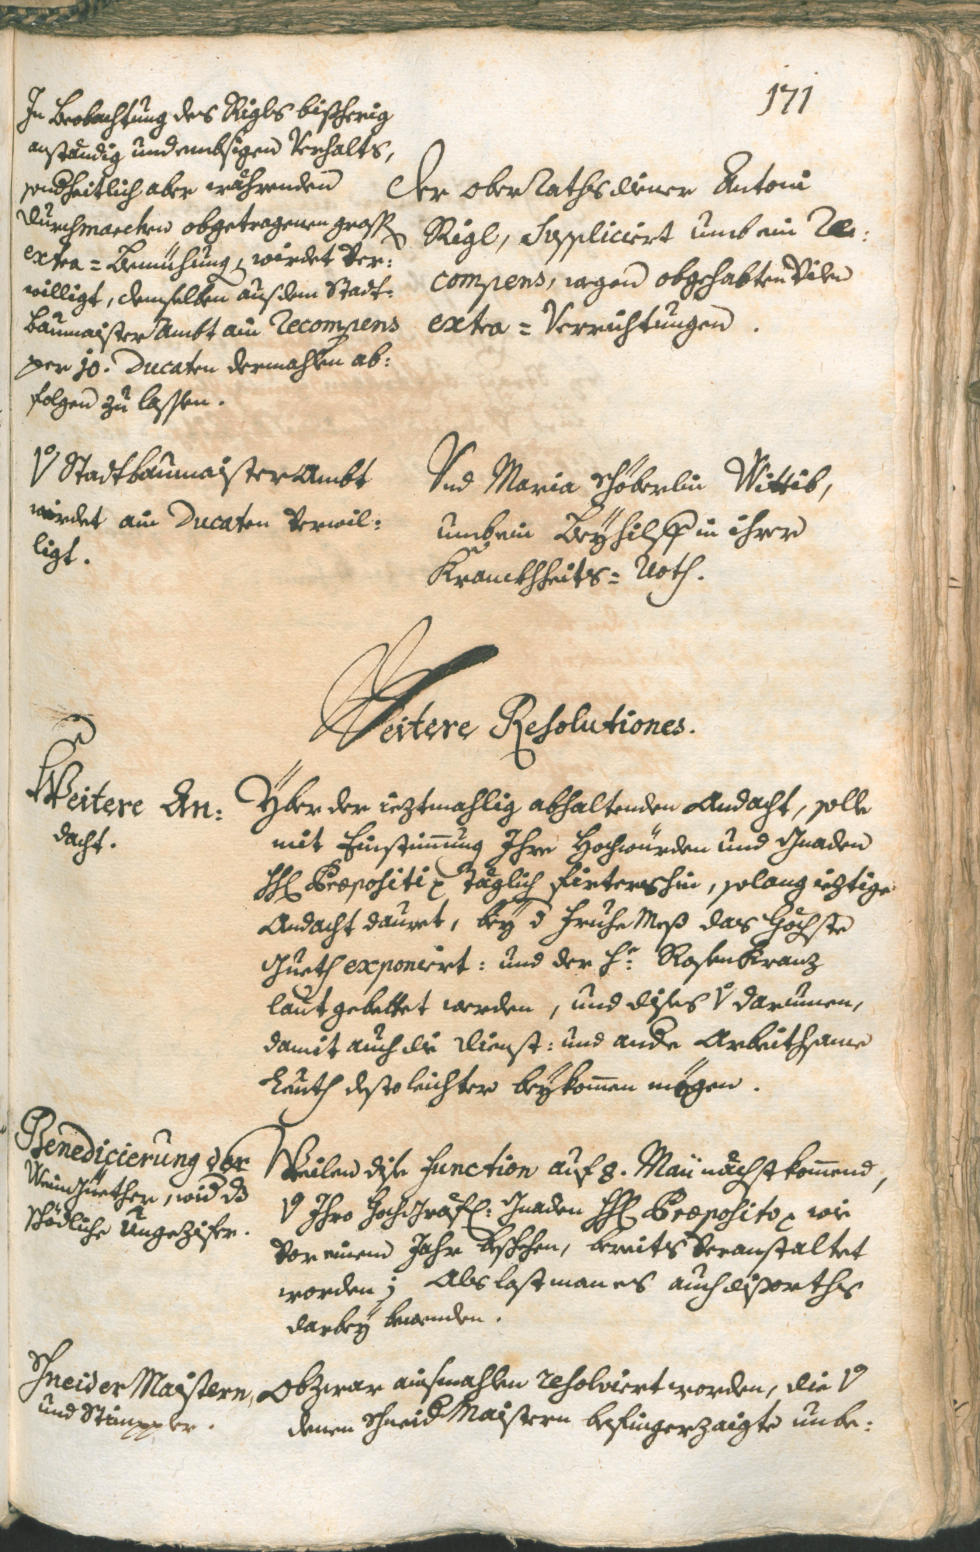 171
In Beobachtung des Rigls bißherig
anständig und embsigen Verhalts,
sonderheitlich aber währenden
Durchmarchen obgetragenen gross
extra=Bemühung, wirdet ver:
willigt, demselben aus dem Stadt=
baumaister Ambt ain Recompens
per 10. Ducaten dermahlen ab:
folgen zu lassen.
Der ober Rathsdiener Antoni
Rigl, Suppliciert umb ein Re:
compens, wegen obgehabten vilen
extra=Verrichtungen.
Stadtbaumaister Ambt
wirdet ain Ducaten verwil=
ligt.
Und Maria Schöberlin Wittib,
umb ein Beyhilff in ihrer
Kranckheits=Noth.
Weitere Resolutiones.
Weitere An:
dacht.
Yber der ieztmahlig abhaltenden Andacht, solle
mit Einstimmung Ihro Hochwürden und Gnaden
Praepositi täglich firtershin, solang ieztige
Andacht dauret, bey d Fruhe Meß das Höchste
Gueth exponiert: und der H: Rosenkranz
laut gebettet werden, und dises darumen,
damit auch die Dienst: und ande Arbeithsame
Leuth desto leichter beykommen mögen.
Benedicierung der
Weingüether, wid
schädliche Ungezifer.
Weilen dise Function auf 8. Maii nächstkommend,
Ihro Hochgräfl: Gnaden Praeposito, wie
vor einem Jahr beschehen, bereits veranstaltet
worden; Als last man es auch diß orths
darbey bewenden.
Schneider Maistern,
und Stimppler.
Obzwar ainsmahlen resolviert worden, die
denen Schneid Maistern befingerzaigte unbe: